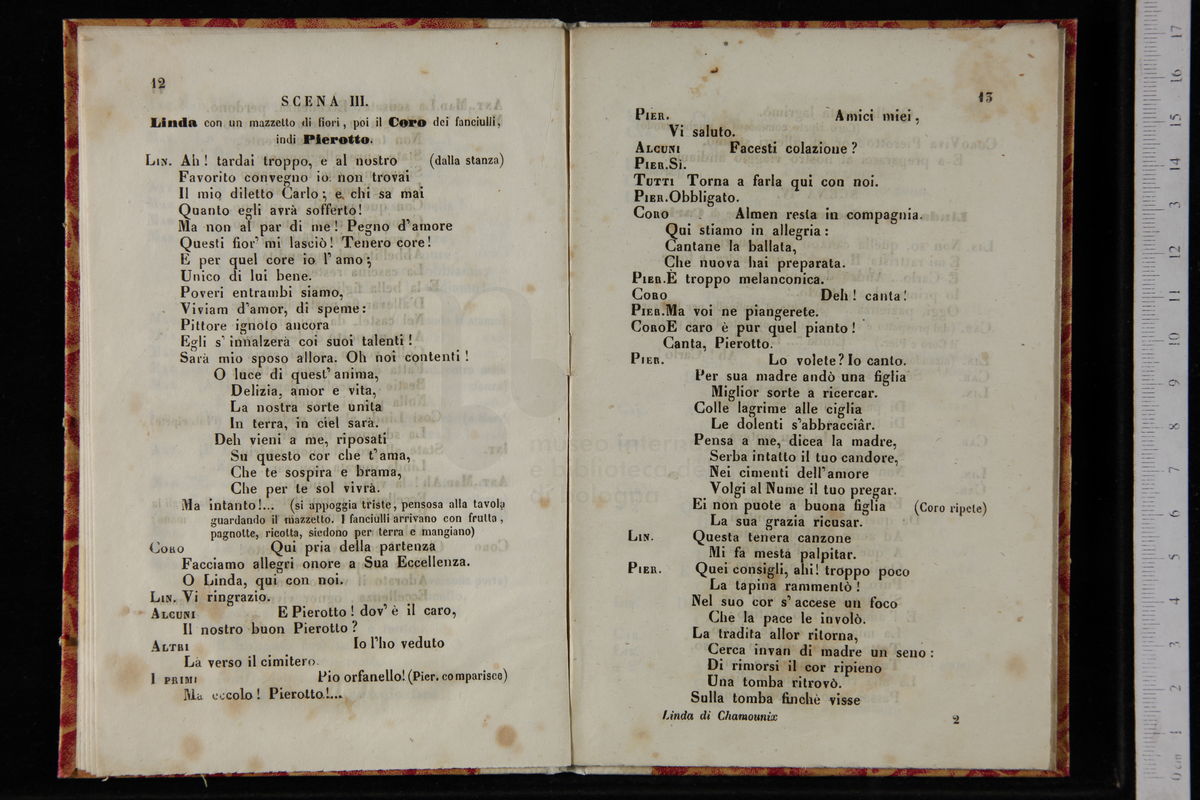 12
SCENA III.
Linda con un mazzetto di fiori, poi il Coro dei fanciulli,
indi Pierotto.
Lin. Ah! tardai troppo, e al nostro (dalla stanza)
Favorito convegno io non trovai
Il mio diletto Carlo; e chi sa mai
Quanto egli avrà sofferto!
Ma non al par di me! Pegno d'amore
Questi fior' mi lasciò! Tenero core!
E per quel core io l'amo;
Unico di lui bene.
Poveri entrambi siamo,
Viviam d'amor, di speme:
Pittore ignoto ancora
Egli s'innalzerà coi suoi talenti!
Sarà mio sposo allora. Oh noi contenti!
O luce di quest'anima,
Delizia, amor e vita,
La nostra sorte unita
In terra, in ciel sarà.
Deh vieni a me, riposati
Su questo cor che t'ama,
Che te sospira e brama,
Che per te sol vivrà.
Ma intanto!... (si appoggia triste, pensosa alla tavola
guardando il mazzetto. I fanciulli arrivano con frutta,
pagnotte, ricotta, siedono per terra e mangiano)
Coro Qui pria della partenza
Facciamo allegri onore a Sua Eccellenza.
O Linda, qui con noi.
Lin. Vi ringrazio.
Alcuni E Pierotto! dov'è il caro,
Il nostro buon Pierotto?
Altri Io l'ho veduto
Là verso il cimitero.
I primi Pio orfanello! (Pier. comparisce)
Ma eccolo! Pierotto!...
13
Pier. Amici miei,
Vi saluto.
Alcuni Facesti colazione?
Pier. Sì.
Tutti Torna a farla qui con noi.
Pier. Obbligato.
Coro Almen resta in compagnia.
Qui stiamo in allegria:
Cantane la ballata,
Che nuova hai preparata.
Pier. È troppo melanconica.
Coro Deh! canta!
Pier. Ma voi ne piangerete.
Coro E caro è pur quel pianto!
Canta, Pierotto.
Pier. Lo volete? Io canto.
Per sua madre andò una figlia
Miglior sorte a ricercar.
Colle lagrime alle ciglia
Le dolenti s'abbracciâr.
Pensa a me, dicea la madre,
Serba intatto il tuo candore,
Nei cimenti dell'amore
Volgi al Nume il tuo pregar.
Ei non puote a buona figlia (Coro ripete)
La sua grazia ricusar.
Lin. Questa tenera canzone
Mi fa mesta palpitar.
Pier. Quei consigli, ahi! troppo poco
La tapina rammentò!
Nel suo cor s'accese un foco
Che la pace le involò.
La tradita allor ritorna,
Cerca invan di madre un seno:
Di rimorsi il cor ripieno
Una tomba ritrovò.
Sulla tomba finchè visse
Linda di Chamounix 2